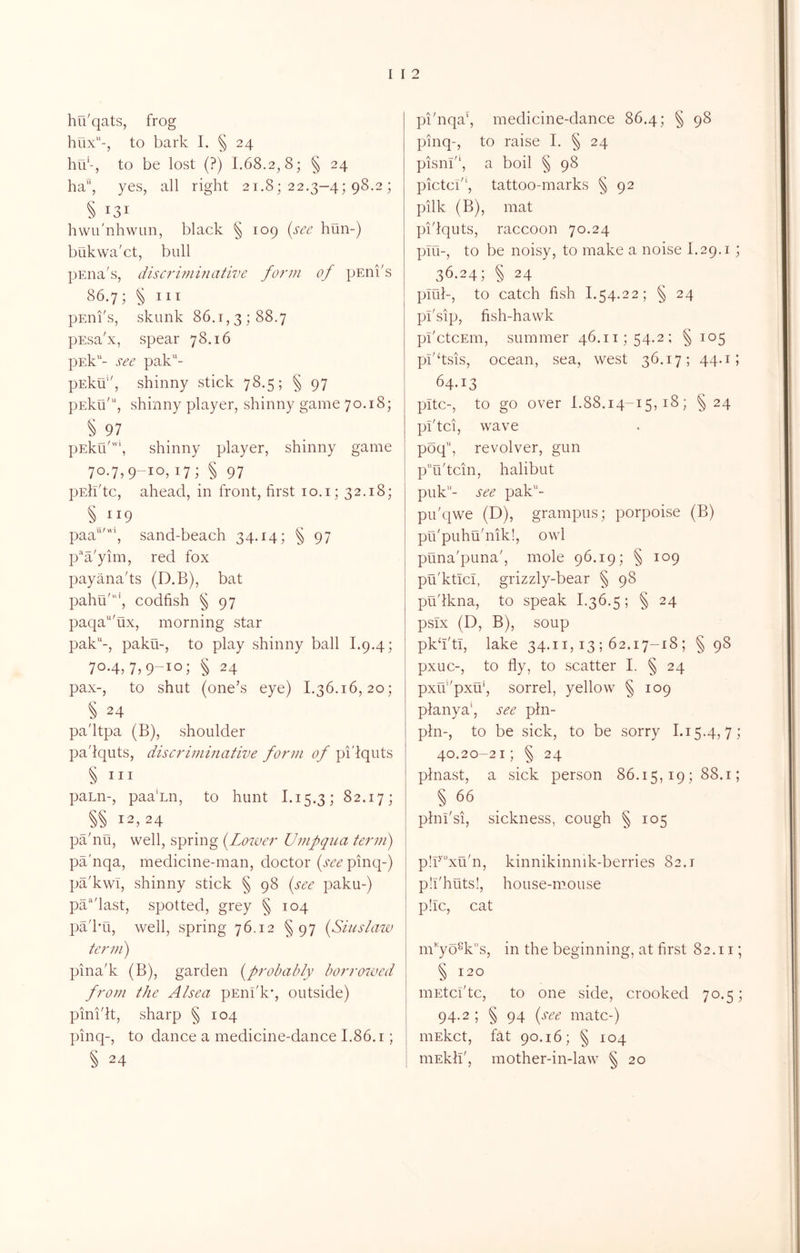 112
hū′qats, frog
hūxᵘ-, to bark I. § 24
hūᵋ-, to be lost (?) I.68.2,8; § 24
haᵘ, yes, all right 21.8; 22.3–4; 98.2;
§ 131
hwu′nhwun, black § 109 (see hūn-)
būkwa′ct, bull
pᴇna′s, discriminative form of pᴇni′s
86.7; § 111
pᴇni′s, skunk 86.1,3; 88.7
pᴇsa′x, spear 78.16
pᴇkᵘ- see pakᵘ-
pᴇkuᵘ′, shinny stick 78.5; § 97
pᴇkū′ᵘ, shinny player, shinny game 70.18;
§ 97
pᴇkū′ʷⁱ, shinny player, shinny game
70.7,9–10,17; § 97
pᴇlī′tc, ahead, in front, first 10.1; 32.18;
§ 119
paaᵘ′ʷⁱ, sand-beach 34.14; § 97
pᵃā′yim, red fox
payāna′ts (D.B), bat
pahū′ʷⁱ, codfish § 97
paqaᵘ′ūx, morning star
pakᵘ-, pakū-, to play shinny ball I.9.4;
70.4,7,9–10; § 24
pax-, to shut (one's eye) I.36.16,20;
§ 24
pa′ltpa (B), shoulder
pa′ɫquts, discriminative form of pi′ɫquts
§ 111
paʟn-, paaᵋʟn, to hunt I.15.3; 82.17;
§§ 12,24
pā′nū, well, spring (Lower Umpqua term)
pā′nqa, medicine-man, doctor (see pinq-)
pā′kwī, shinny stick § 98 (see paku-)
pāᵃ′last, spotted, grey § 104
pā′l·ū, well, spring 76.12 § 97 (Siuslaw
term)
pīna′k (B), garden (probably borrowed
from the Alsea pᴇnī′k·, outside)
pīnī′ɫt, sharp § 104
pīnq-, to dance a medicine-dance I.86.1;
§ 24
pī′nqaᵋ, medicine-dance 86.4; § 98
pīnq-, to raise I. § 24
pīsnī′ᵋ, a boil § 98
pīctcī′ᵋ, tattoo-marks § 92
pīlk (B), mat
pī′ɫquts, raccoon 70.24
pīū-, to be noisy, to make a noise I.29.1;
36.24; § 24
pīūɫ-, to catch fish I.54.22; § 24
pī′sip, fish-hawk
pī′ctcᴇm, summer 46.11; 54.2; § 105
pī′ᵋtsīs, ocean, sea, west 36.17; 44.1;
64.13
pītc-, to go over I.88.14–15,18; § 24
pī′tcī, wave
pōqᵘ, revolver, gun
pᵘū′tcin, halibut
pukᵘ- see pakᵘ-
pu′qwe (D), grampus; porpoise (B)
pū′puhū′nīk!, owl
pūna′puna′, mole 96.19; § 109
pū′ktīcī, grizzly-bear § 98
pū′ɫkna, to speak I.36.5; § 24
psīx (D, B), soup
pkᵋī′tī, lake 34.11,13; 62.17–18; § 98
pxuc-, to fly, to scatter I. § 24
pxūᵋ′pxūᵋ, sorrel, yellow § 109
pɫanyaᵋ, see pɫn-
pɫn-, to be sick, to be sorry I.15.4,7;
40.20–21; § 24
pɫnast, a sick person 86.15,19; 88.1;
§ 66
pɫnī′sī, sickness, cough § 105
p!īʸᵘxū′n, kinnikinnik-berries 82.1
p!ī′hūts!, house-mouse
p!īc, cat
mᵏyō⁸kᵘs, in the beginning, at first 82.11;
§ 120
mᴇtcī′tc, to one side, crooked 70.5;
94.2; § 94 (see matc-)
mᴇkct, fat 90.16; § 104
mᴇkɫī′, mother-in-law § 20